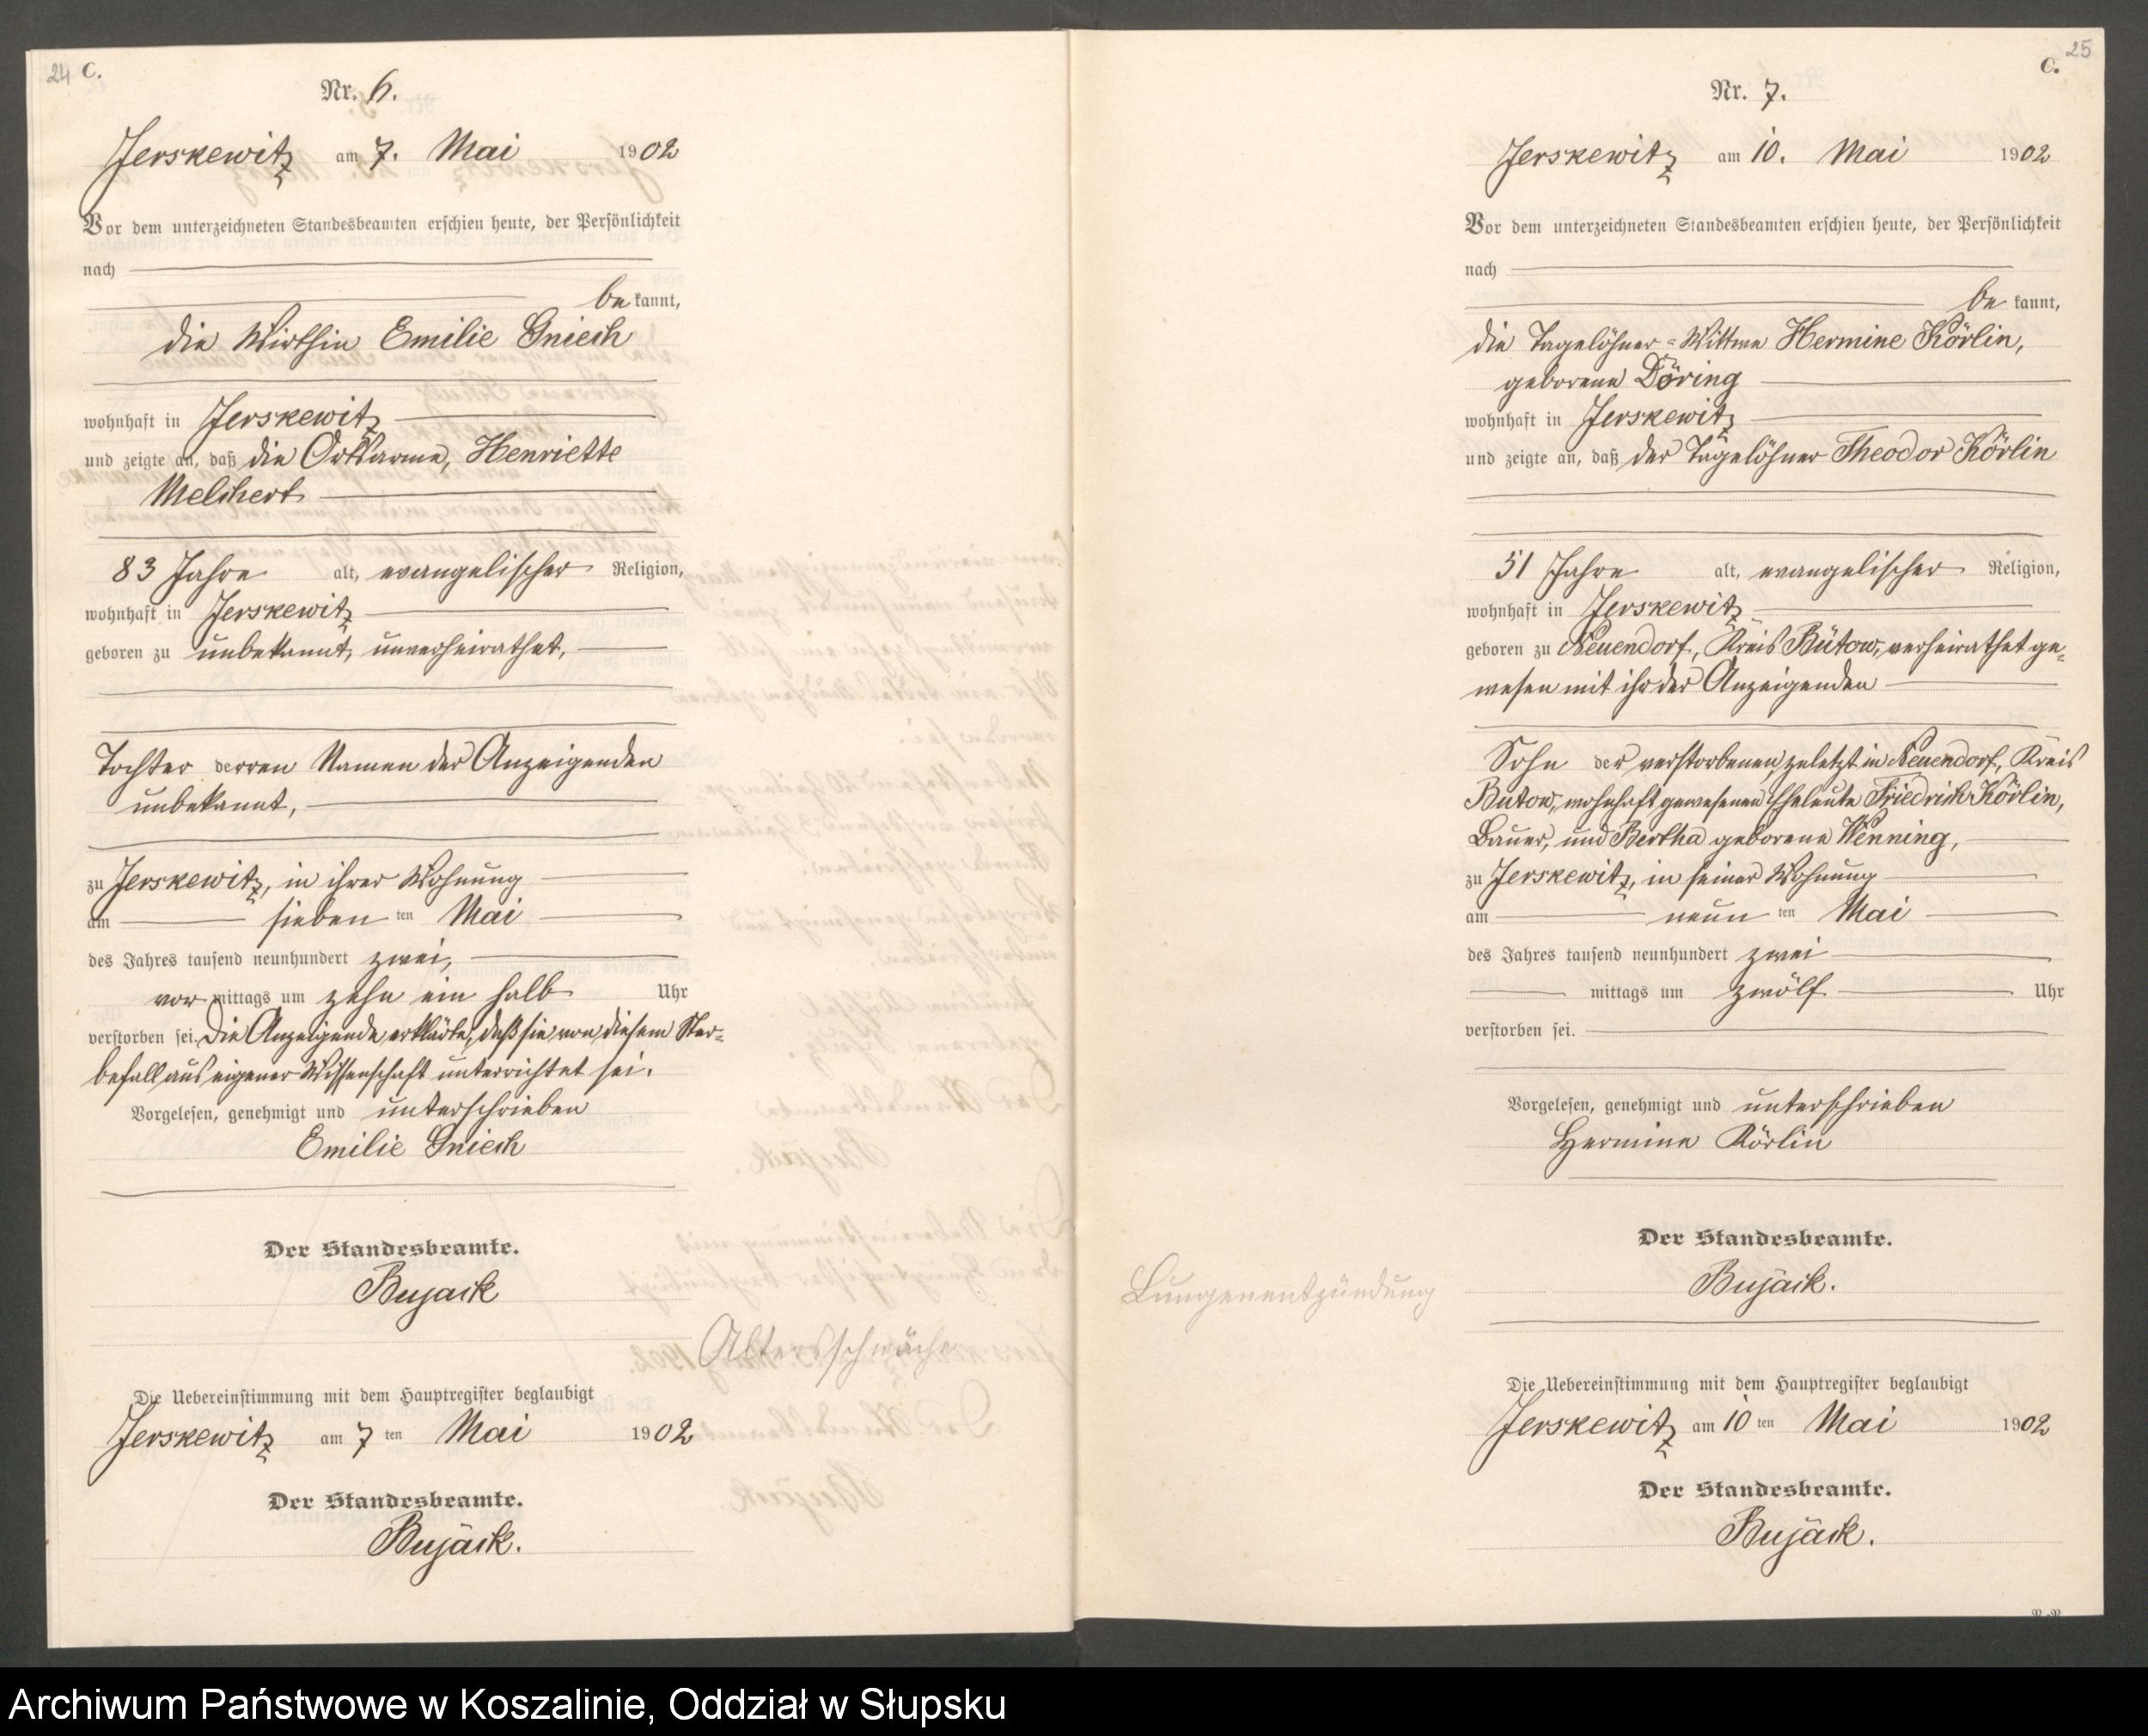 24 C.
Nr. 6.
Jerskewitz am 7. Mai 1902
Vor dem unterzeichneten Standesbeamten erschien heute, der Persönlichkeit
nach
be kannt,
die Wirthin Emilie Gniech
wohnhaft in Jerskewitz
und zeigte an, daß die Ortsarme, Henriette
Melchert
83 Jahre alt, evangelischer Religion,
wohnhaft in Jerskewitz
geboren zu unbekannt, unverheirathet,
Tochter derren Namen der Anzeigenden
unbekannt,
zu Jerskewitz, in ihrer Wohnung
am sieben ten Mai
des Jahres tausend neunhundert zwei,
vor mittags um zehn ein halb Uhr
verstorben sei. Die Anzeigende erklärte, daß sie von diesem Ster-
befall aus eigener Wissenschaft unterrichtet sei.
Vorgelesen, genehmigt und unterschrieben
Emilie Gniech
Der Standesbeamte.
Bujack
Altersschwäche
Die Uebereinstimmung mit dem Hauptregister beglaubigt
Jerskewitz am 7 ten Mai 1902
Der Standesbeamte.
Bujack.
25
C.
Nr. 7.
Jerskewitz am 10. Mai 1902
Vor dem unterzeichneten Standesbeamten erschien heute, der Persönlichkeit
nach
be kannt,
die Tagelöhner-Wittwe Hermine Körlin,
geborene Döring
wohnhaft in Jerskewitz
und zeigte an, daß der Tagelöhner Theodor Körlin
51 Jahre alt, evangelischer Religion,
wohnhaft in Jerskewitz
geboren zu Neuendorf, Kreis Bütow, verheirathet ge-
wesen mit ihr der Anzeigenden
Sohn der verstorbenen, zuletzt in Neuendorf, Kreis
Butow, wohnhaft gewesenen Eheleute Friedrich Körlin,
Bauer, und Bertha geborene Wenning,
zu Jerskewitz, in seiner Wohnung
am neun ten Mai
des Jahres tausend neunhundert zwei
mittags um zwölf Uhr
verstorben sei.
Vorgelesen, genehmigt und unterschrieben
Hermine Körlin
Der Standesbeamte.
Bujack.
Lungenentzündung
Die Uebereinstimmung mit dem Hauptregister beglaubigt
Jerskewitz am 10 ten Mai 1902
Der Standesbeamte.
Bujack.
Archiwum Państwowe w Koszalinie, Oddział w Słupsku